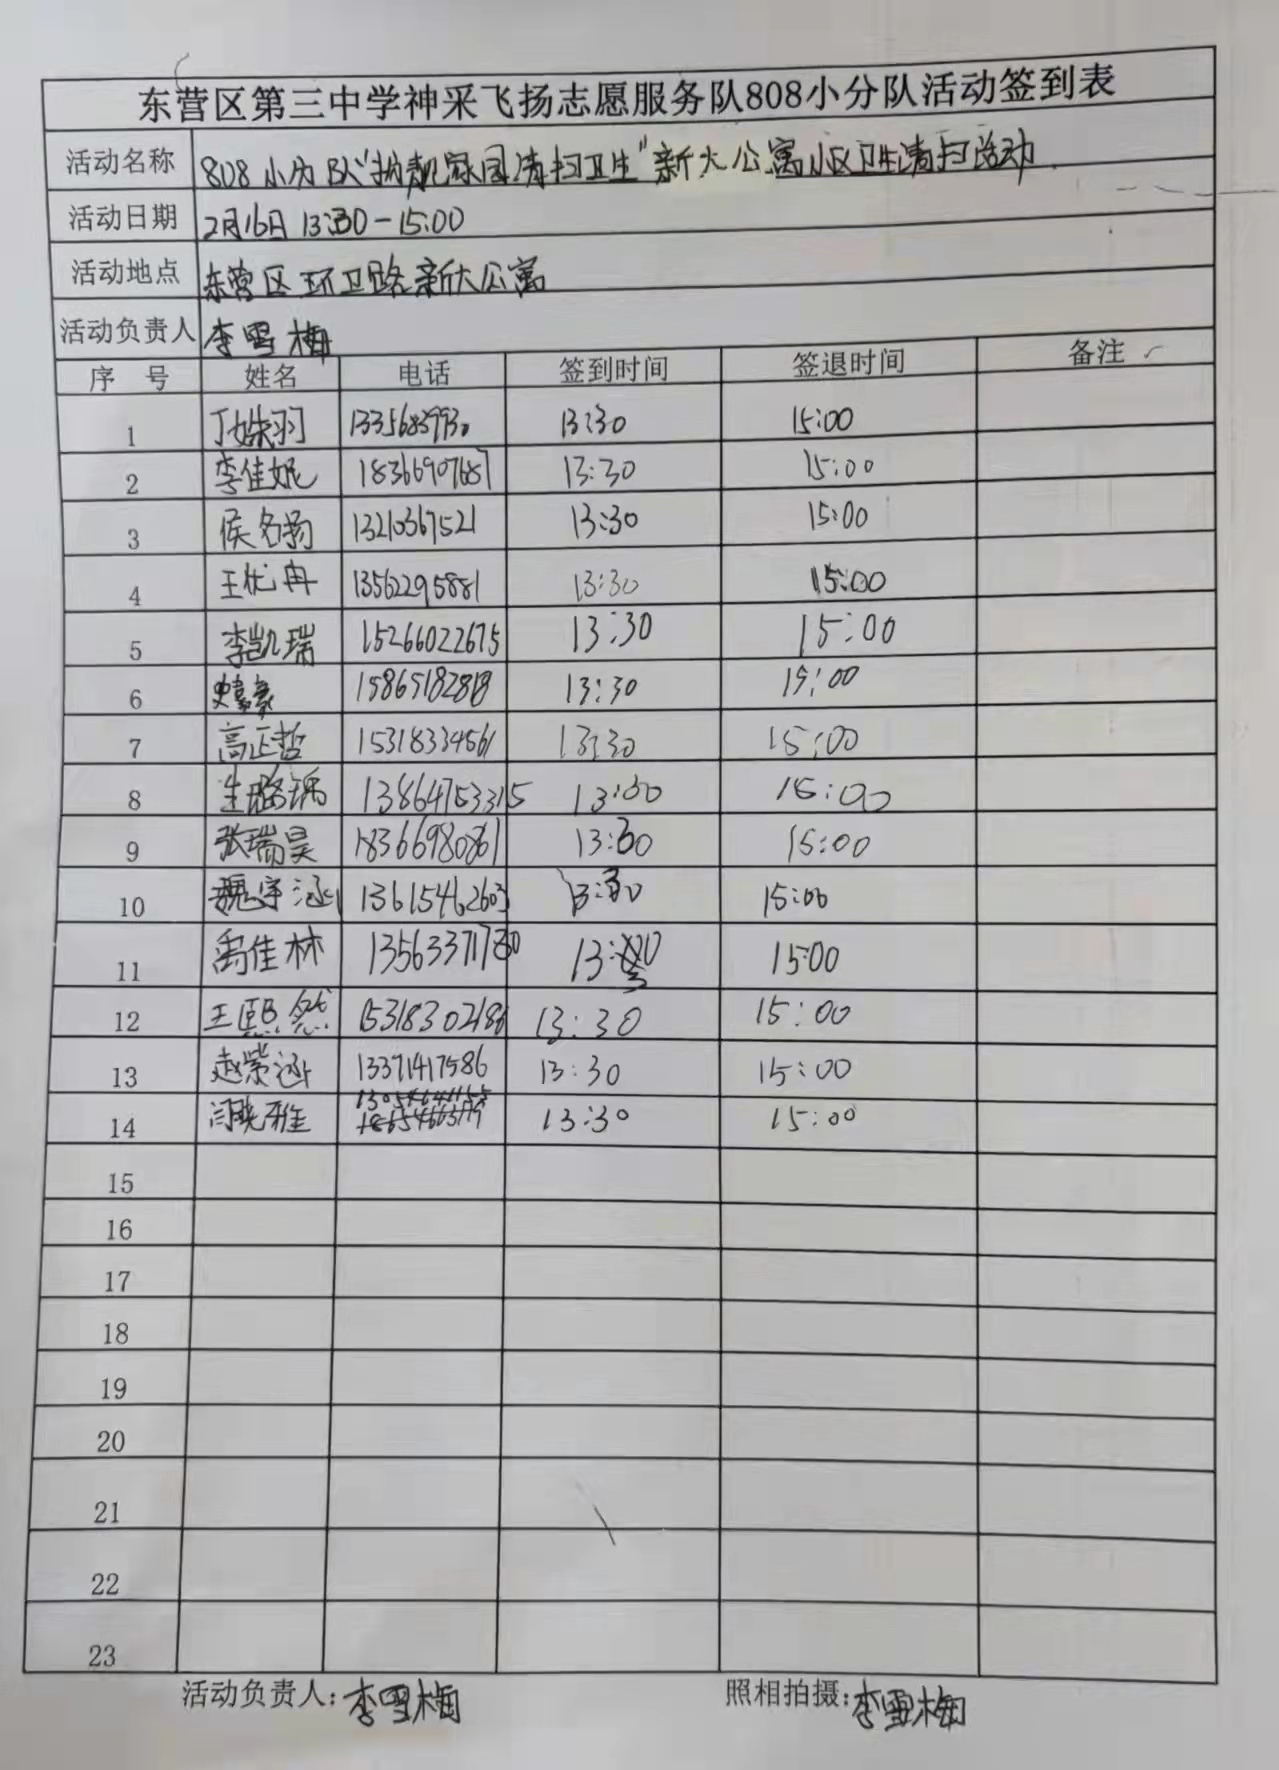 东营区第三中学神采飞扬志愿服务队808小分队活动签到表
活动名称 808小分队"扮靓家园清扫卫生"新大公寓小区卫生清扫活动.
活动日期 2月16日 13:30-15:00
活动地点 东营区环卫路新大公寓
活动负责人 李雪梅
序 号 姓名 电话 签到时间 签退时间 备注
1 丁姝羽 13:30 15:00
2 李佳妮 18366907687 13:30 15:00
3 侯名扬 13210367521 13:30 15:00
4 王忧冉 13562295881 13:30 15:00
5 李凯瑞 15266022675 13:30 15:00
6 13:30 15:00
7 高正哲 15318334561 13:30 15:00
8 13864753315 13:30 15:00
9 张瑞昊 18366980861 13:30 15:00
10 魏宇涵 13615462603 13:30 15:00
11 禹佳林 13563371730 13:30 15:00
12 王熙然 13:30 15:00
13 赵崇涵 13371417586 13:30 15:00
14 闫晓雅 13:30 15:00
15
16
17
18
19
20
21
22
23
活动负责人:李雪梅 照相拍摄:李雪梅